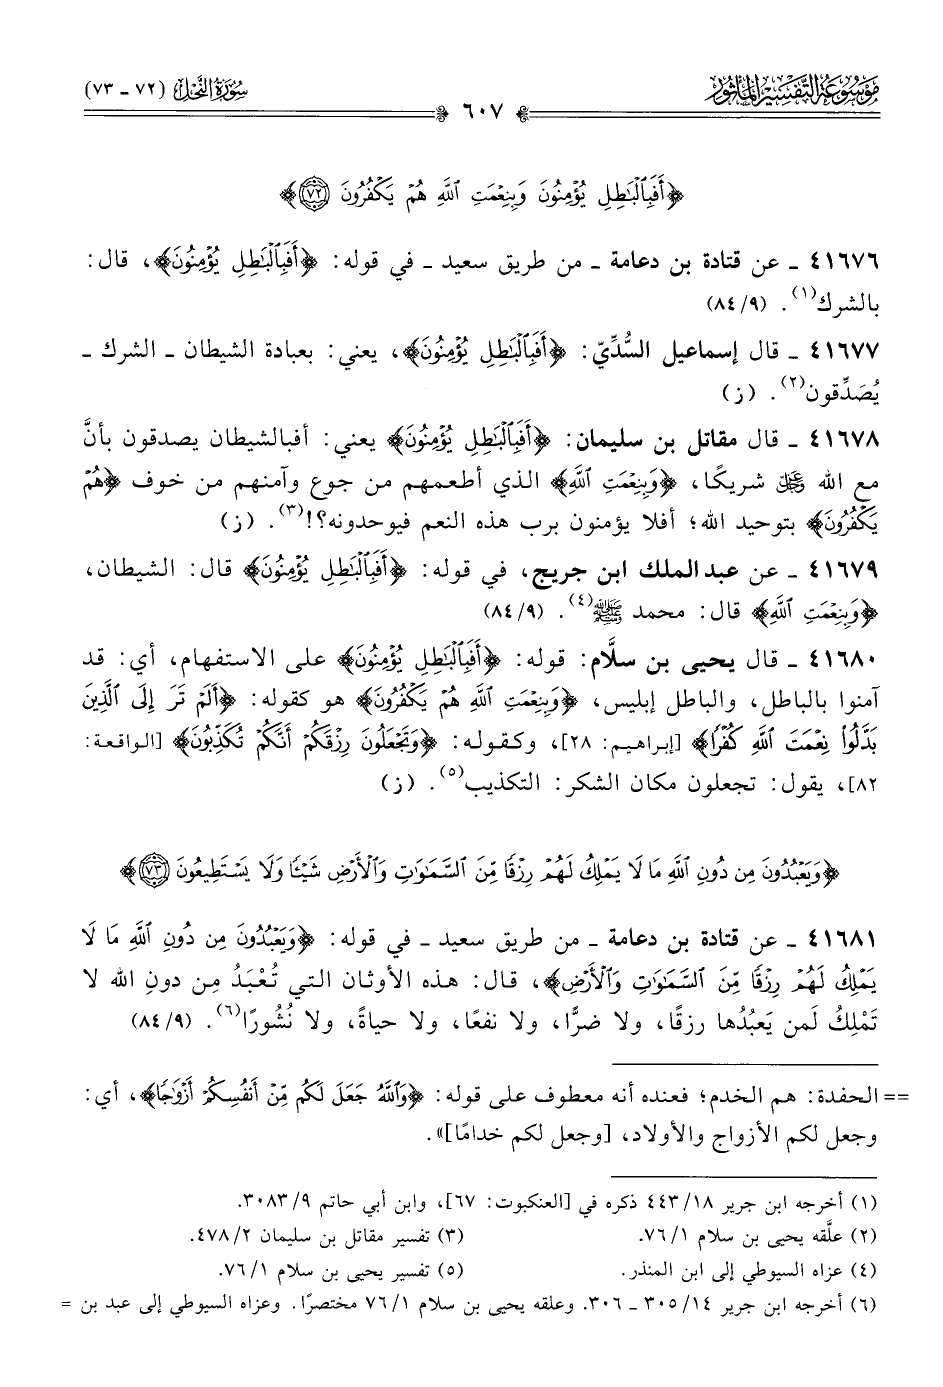 مَوْسُوعَة التَّفْسِير المَأْثُور
سُورَةُ النَّحْل (٧٢ - ٧٣)
٦٠٧
﴿أَفَبِٱلْبَٰطِلِ يُؤْمِنُونَ وَبِنِعْمَتِ ٱللَّهِ هُمْ يَكْفُرُونَ ٧٢﴾
٤١٦٧٦ - عن قتادة بن دعامة - من طريق سعيد - في قوله: ﴿أَفَبِٱلْبَٰطِلِ يُؤْمِنُونَ﴾، قال:
بالشرك(١). (٨٤/٩)
٤١٦٧٧ - قال إسماعيل السُّدِّيّ: ﴿أَفَبِٱلْبَٰطِلِ يُؤْمِنُونَ﴾، يعني: بعبادة الشيطان - الشرك -
يُصَدِّقون(٢). (ز)
٤١٦٧٨ - قال مقاتل بن سليمان: ﴿أَفَبِٱلْبَٰطِلِ يُؤْمِنُونَ﴾ يعني: أفبالشيطان يصدقون بأنَّ
مع الله ﷻ شريكًا، ﴿وَبِنِعْمَتِ ٱللَّهِ﴾ الذي أطعمهم من جوع وآمنهم من خوف ﴿هُمْ
يَكْفُرُونَ﴾ بتوحيد الله؛ أفلا يؤمنون برب هذه النعم فيوحدونه؟!(٣). (ز)
٤١٦٧٩ - عن عبد الملك ابن جريج، في قوله: ﴿أَفَبِٱلْبَٰطِلِ يُؤْمِنُونَ﴾ قال: الشيطان،
﴿وَبِنِعْمَتِ ٱللَّهِ﴾ قال: محمد ﷺ(٤). (٨٤/٩)
٤١٦٨٠ - قال يحيى بن سلَّام: قوله: ﴿أَفَبِٱلْبَٰطِلِ يُؤْمِنُونَ﴾ على الاستفهام، أي: قد
آمنوا بالباطل، والباطل إبليس، ﴿وَبِنِعْمَتِ ٱللَّهِ هُمْ يَكْفُرُونَ﴾ هو كقوله: ﴿أَلَمْ تَرَ إِلَى ٱلَّذِينَ
بَدَّلُوا۟ نِعْمَتَ ٱللَّهِ كُفْرًا﴾ [إبراهيم: ٢٨]، وكقوله: ﴿وَتَجْعَلُونَ رِزْقَكُمْ أَنَّكُمْ تُكَذِّبُونَ﴾ [الواقعة:
٨٢]، يقول: تجعلون مكان الشكر: التكذيب(٥). (ز)
﴿وَيَعْبُدُونَ مِن دُونِ ٱللَّهِ مَا لَا يَمْلِكُ لَهُمْ رِزْقًا مِّنَ ٱلسَّمَٰوَٰتِ وَٱلْأَرْضِ شَيْـًٔا وَلَا يَسْتَطِيعُونَ ٧٣﴾
٤١٦٨١ - عن قتادة بن دعامة - من طريق سعيد - في قوله: ﴿وَيَعْبُدُونَ مِن دُونِ ٱللَّهِ مَا لَا
يَمْلِكُ لَهُمْ رِزْقًا مِّنَ ٱلسَّمَٰوَٰتِ وَٱلْأَرْضِ﴾، قال: هذه الأوثان التي تُعْبَدُ مِن دونِ الله لا
تَمْلِكُ لَمن يَعبُدُها رزقًا، ولا ضرًّا، ولا نفعًا، ولا حياةً، ولا نُشُورًا(٦). (٨٤/٩)
== الحفدة: هم الخدم؛ فعنده أنه معطوف على قوله: ﴿وَٱللَّهُ جَعَلَ لَكُم مِّنْ أَنفُسِكُمْ أَزْوَٰجًا﴾، أي:
وجعل لكم الأزواج والأولاد، [وجعل لكم خدامًا]».
(١) أخرجه ابن جرير ٤٤٣/١٨ ذكره في [العنكبوت: ٦٧]، وابن أبي حاتم ٣٠٨٣/٩.
(٢) علَّقه يحيى بن سلام ٧٦/١. (٣) تفسير مقاتل بن سليمان ٤٧٨/٢.
(٤) عزاه السيوطي إلى ابن المنذر. (٥) تفسير يحيى بن سلام ٧٦/١.
(٦) أخرجه ابن جرير ٣٠٥/١٤ - ٣٠٦. وعلقه يحيى بن سلام ٧٦/١ مختصرًا. وعزاه السيوطي إلى عبد بن =